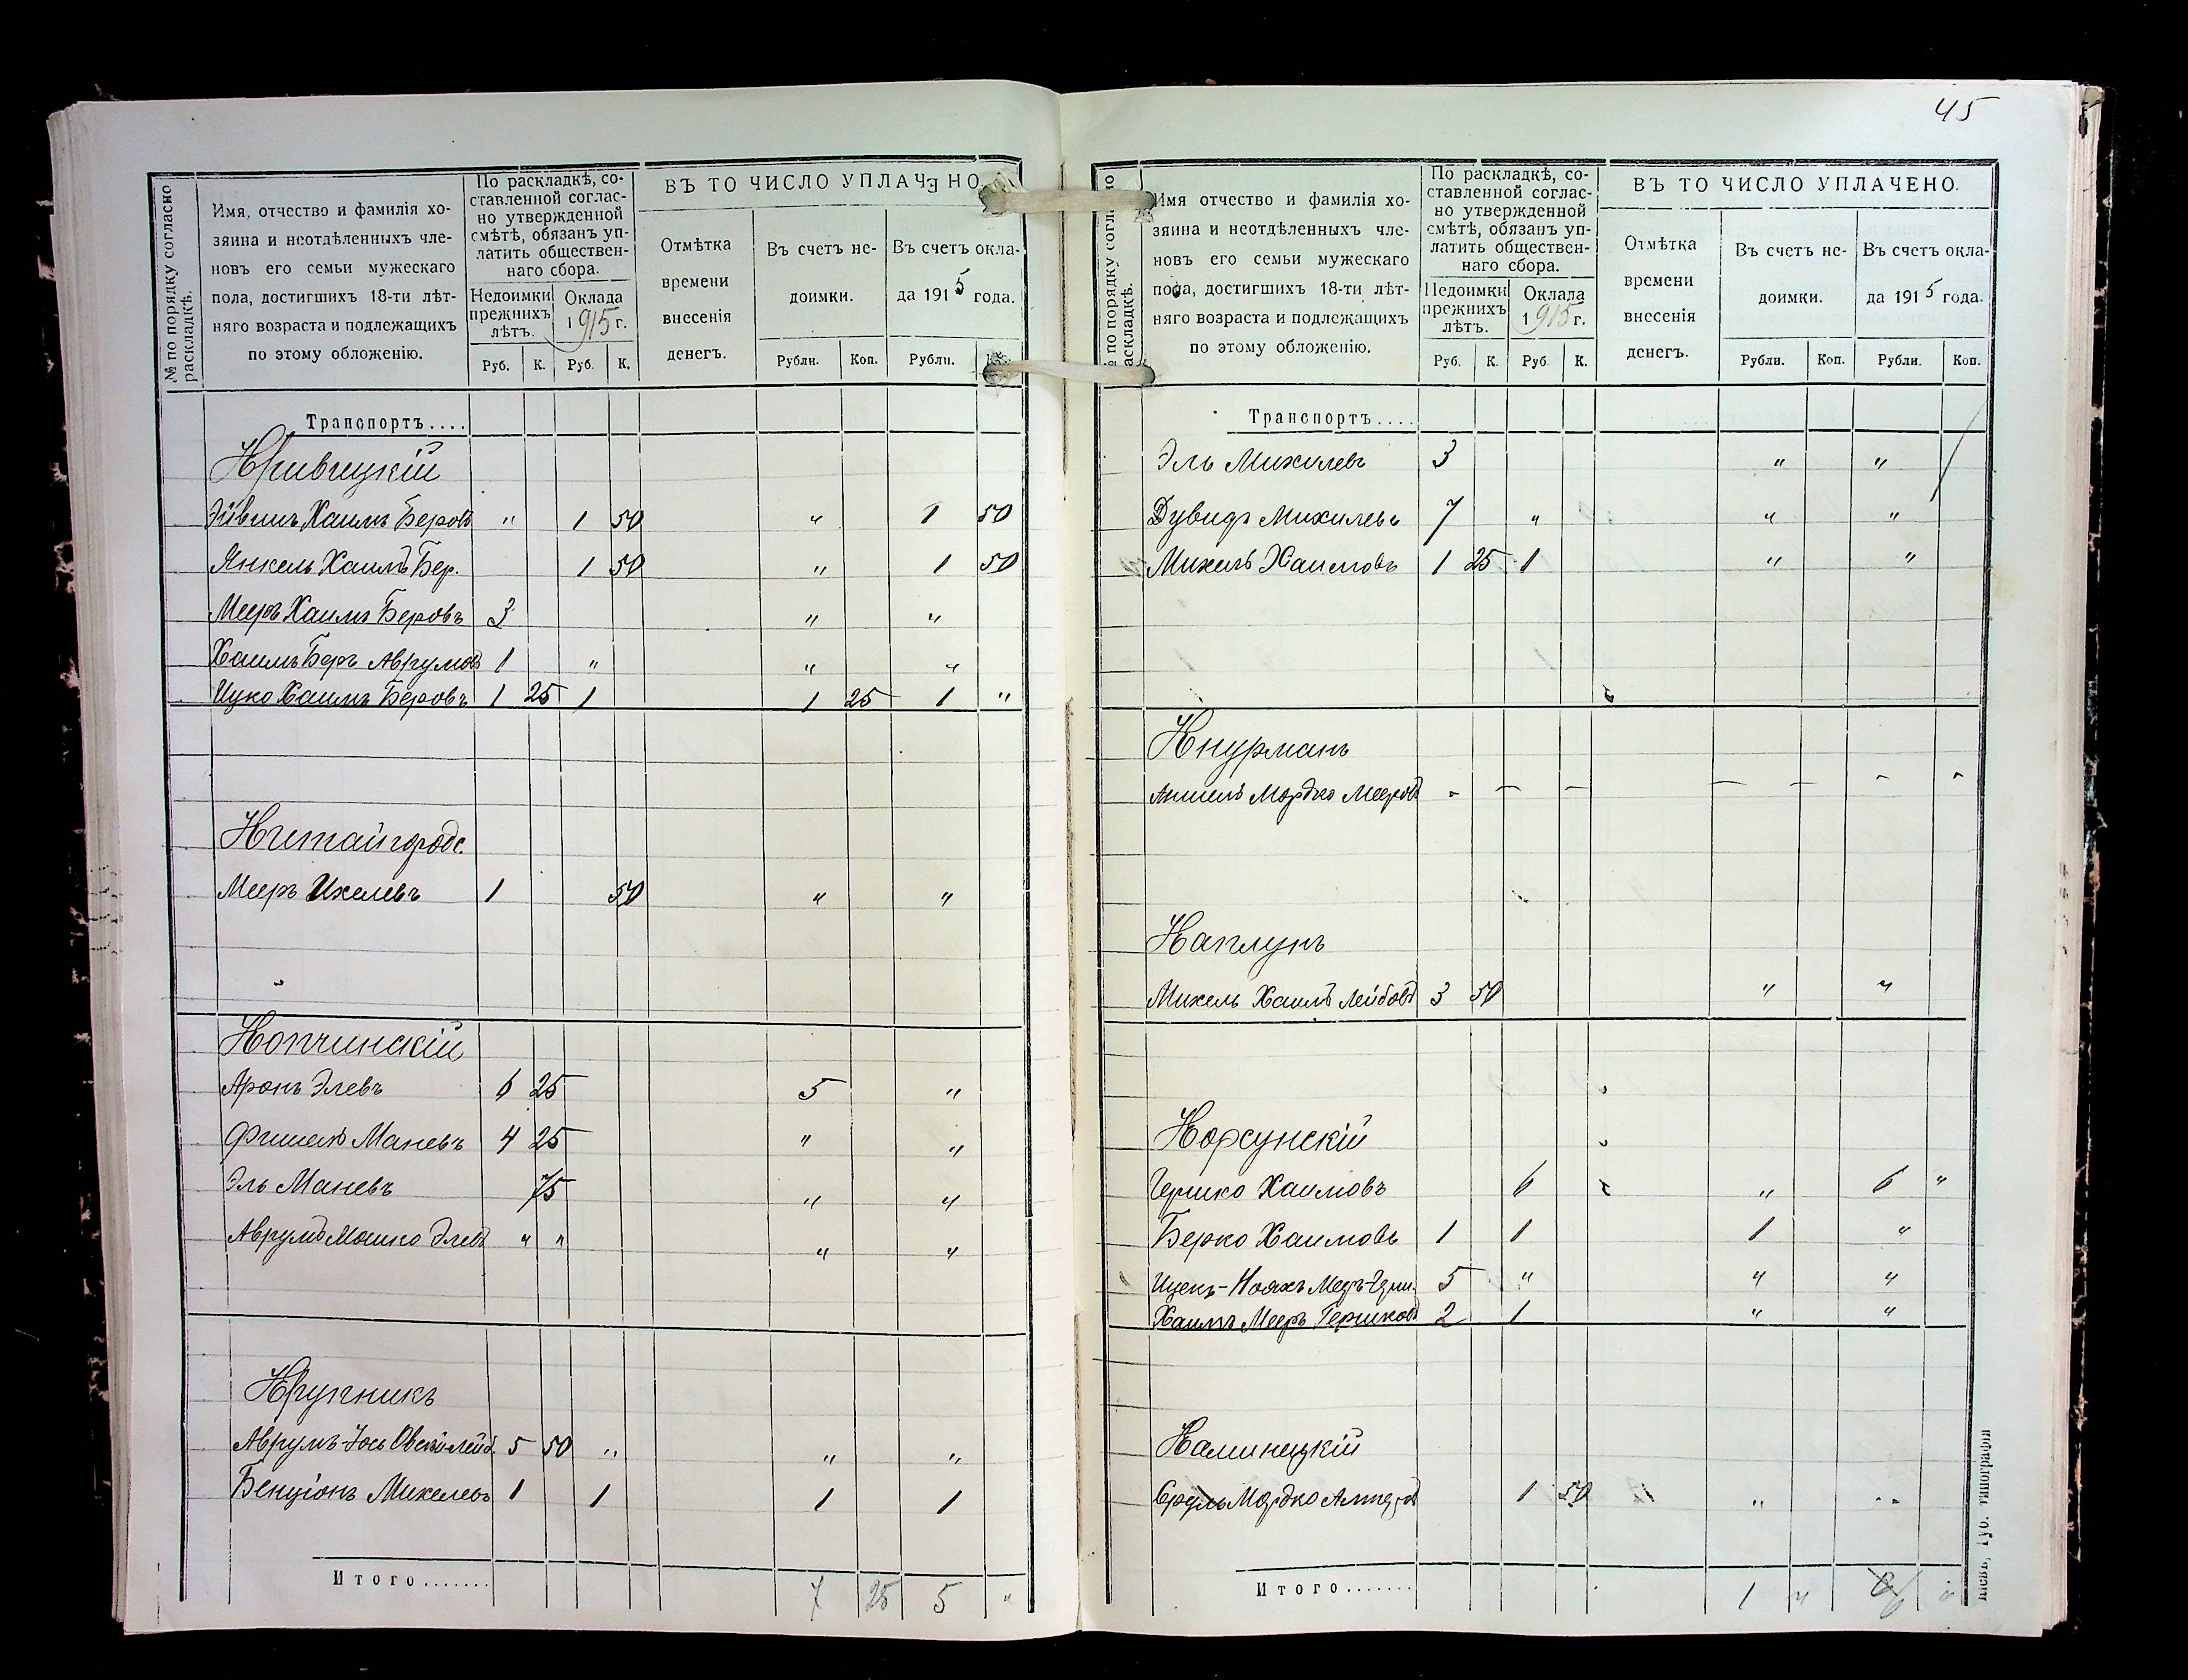 45
№ по порядку согласно раскладкѣ.
Имя, отчество и фамилія хо-
зяина и неотдѣленныхъ чле-
новъ его семьи мужескаго
пола, достигшихъ 18-ти лѣт-
няго возраста и подлежащихъ
по этому обложенію.
По раскладкѣ, со-
ставленной соглас-
но утвержденной
смѣтѣ, обязанъ уп-
латить обществен-
наго сбора.
Недоимки прежнихъ лѣтъ.
Оклада 1915 г.
Руб. К. Руб. К.
ВЪ ТО ЧИСЛО УПЛАЧЕНО
Отмѣтка
времени
внесенія
денегъ.
Въ счетъ не-
доимки.
Въ счетъ окла-
да 1915 года.
Рубли. Коп. Рубли.
Транспортъ....
Кривицкій
Хаимъ Беровъ " 1 50 " 1 50
Янкель Хаимъ Бер. 1 50 " 1 50
Мееръ Хаимъ Беровъ 3 " "
Хаимъ Беръ Аврумовъ 1 " " "
Ицко Хаимъ Беровъ 1 25 1 1 25 1 "
Китайгородс.
Мееръ Ихелевъ 1 50 " "
Копчинскій
Аронъ Элевъ 6 25 5 "
Фишель Маневъ 4 25 " "
Эль Маневъ 75 " "
Аврумъ Мошко Элевъ " " " "
Крупникъ
Аврумъ-Іось 5 50 " " "
Бенціонъ Михелевъ 1 1 1 1
Итого....... 7 25 5 "
Имя отчество и фамилія хо-
зяина и неотдѣленныхъ чле-
новъ его семьи мужескаго
пола, достигшихъ 18-ти лѣт-
няго возраста и подлежащихъ
по этому обложенію.
По раскладкѣ, со-
ставленной соглас-
но утвержденной
смѣтѣ, обязанъ уп-
латить обществен-
наго сбора.
Недоимки прежнихъ лѣтъ.
Оклада 1915 г.
Руб. К. Руб. К.
ВЪ ТО ЧИСЛО УПЛАЧЕНО.
Отмѣтка
времени
внесенія
денегъ.
Въ счетъ не-
доимки.
Въ счетъ окла-
да 1915 года.
Рубли. Коп. Рубли. Коп.
Транспортъ....
Эль Михилевъ 3 " "
Дувидъ Михилевъ 7 " " "
Михель Хаимовъ 1 25 1 " "
Кнурманъ
Аншель Мордко Мееровъ - - - - - - -
Каплунъ
Михель Хаимъ Лейбовъ 3 50 " "
Корсунскій
Гершко Хаимовъ 6 " 6 "
Берко Хаимовъ 1 1 1 "
Ицекъ-Нояхъ 5 " " "
Хаимъ Мееръ Гершковъ 2 1 " "
Каминецкій
Сруль Мордко 1 50 " "
Итого....... 1 " 6
Губ. типографія